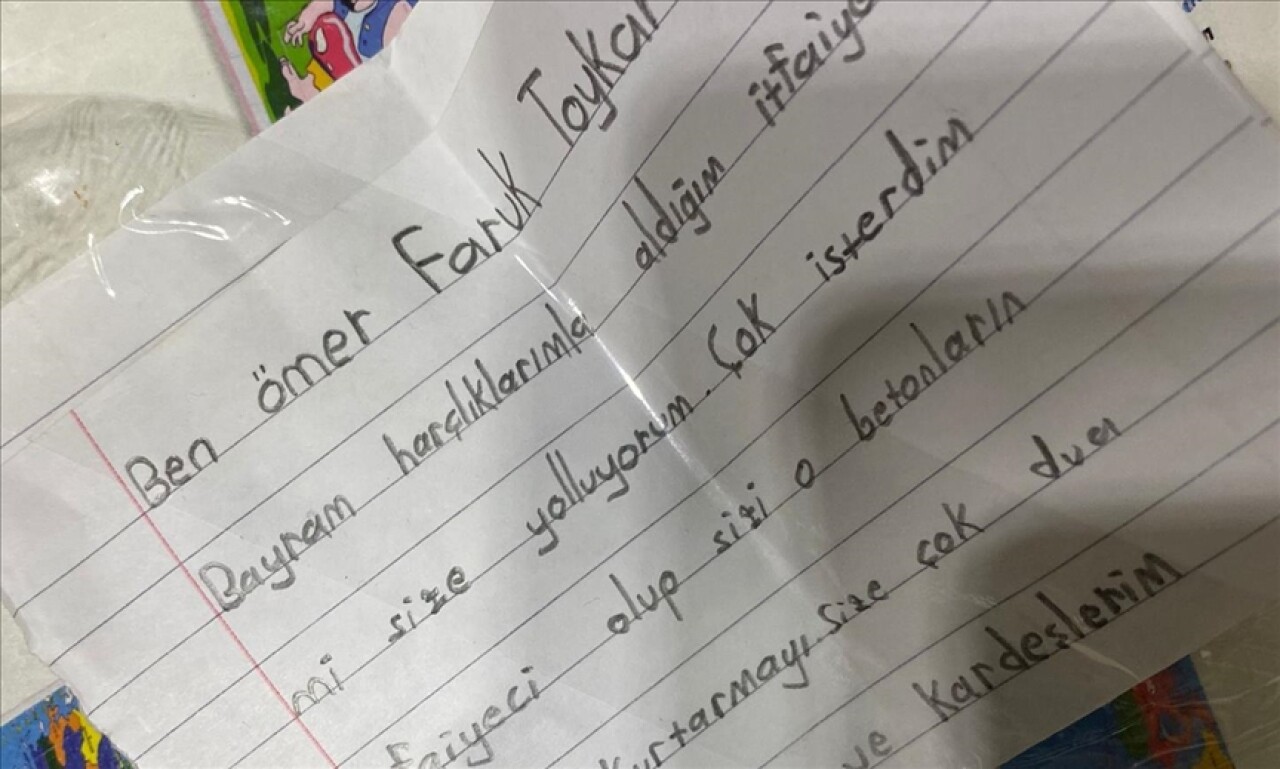 Ben ömer Faruk Toykar
Bayram harçlıklarımla aldığım itfaiye
mi size yolluyorum. Çok isterdim
faiyeci olup sizi o betonların
kurtarmayı. size çok dua
ve kardeşlerim